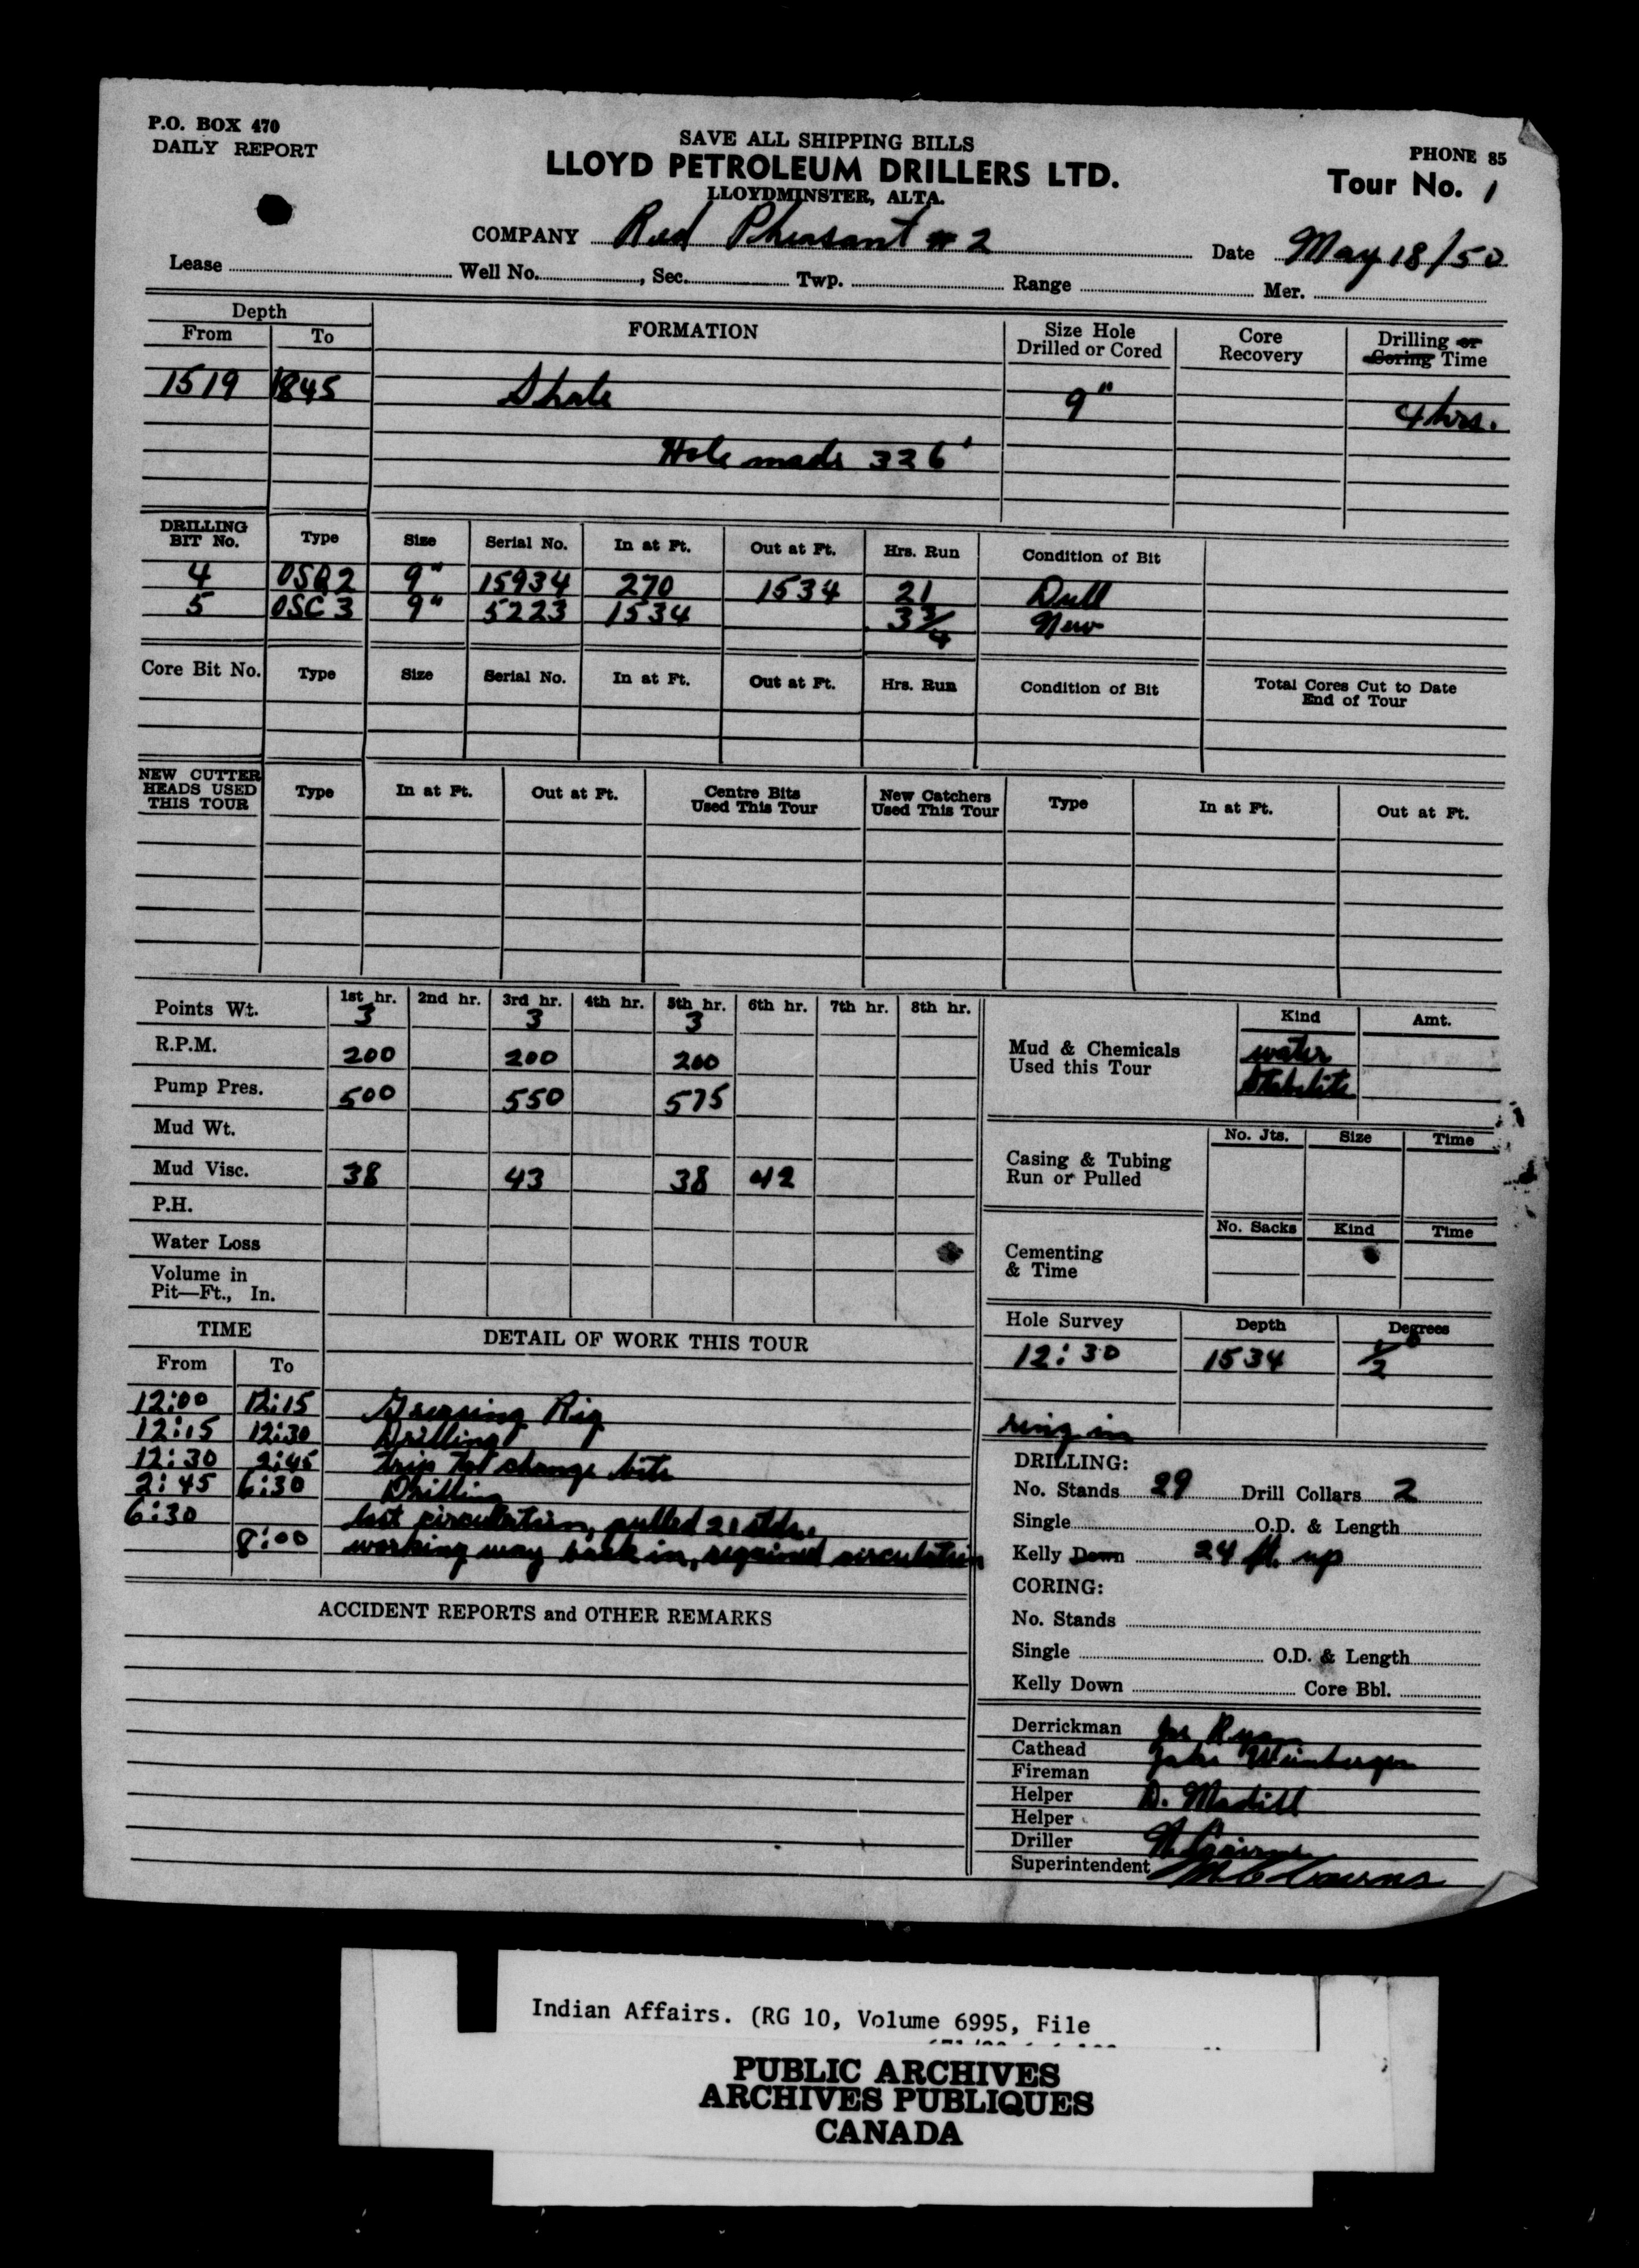 P.O. BOX 470
DAILY REPORT
SAVE ALL SHIPPING BILLS
LLOYD PETROLEUM DRILLERS LTD.
LLOYDMINSTER, ALTA.
PHONE 85
Tour No. 1
COMPANY Red Pheasant #2 Date May 18/50
Lease Well No. , Sec. Twp. Range Mer.
Depth
From To FORMATION Size Hole Drilled or Cored Core Recovery Drilling or Coring Time
1519 1845 Shale 9" 4 hrs.
Hole made 326'
DRILLING BIT No. Type Size Serial No. In at Ft. Out at Ft. Hrs. Run Condition of Bit
4 OSQ2 9" 15934 270 1534 21 Dull
5 OSC3 9" 5223 1534 3 3/4 New
Core Bit No. Type Size Serial No. In at Ft. Out at Ft. Hrs. Run Condition of Bit Total Cores Cut to Date End of Tour
NEW CUTTER HEADS USED THIS TOUR Type In at Ft. Out at Ft. Centre Bits Used This Tour New Catchers Used This Tour Type In at Ft. Out at Ft.
1st hr. 2nd hr. 3rd hr. 4th hr. 5th hr. 6th hr. 7th hr. 8th hr.
Points Wt. 3 3 3
R.P.M. 200 200 200
Pump Pres. 500 550 575
Mud Wt.
Mud Visc. 38 43 38 42
P.H.
Water Loss
Volume in
Pit—Ft., In.
Kind Amt.
Mud & Chemicals Used this Tour
water
Stabilite
No. Jts. Size Time
Casing & Tubing
Run or Pulled
No. Sacks Kind Time
Cementing
& Time
Hole Survey Depth Degrees
12:30 1534 1/2
TIME DETAIL OF WORK THIS TOUR
From To
12:00 12:15 Greasing Rig
12:15 12:30 Drilling
12:30 2:45 trip to change bits
2:45 6:30 Drilling
6:30 lost circulation, pulled 21 stds.
8:00 working way back in, regained circulation
ring in
DRILLING:
No. Stands 29 Drill Collars 2
Single O.D. & Length
Kelly Down 24 ft. up
CORING:
No. Stands
Single O.D. & Length
Kelly Down Core Bbl.
ACCIDENT REPORTS and OTHER REMARKS
Derrickman Ryan
Cathead Weinberger
Fireman
Helper D. Madill
Helper
Driller Cairns
Superintendent Cairns
Indian Affairs. (RG 10, Volume 6995, File
PUBLIC ARCHIVES
ARCHIVES PUBLIQUES
CANADA